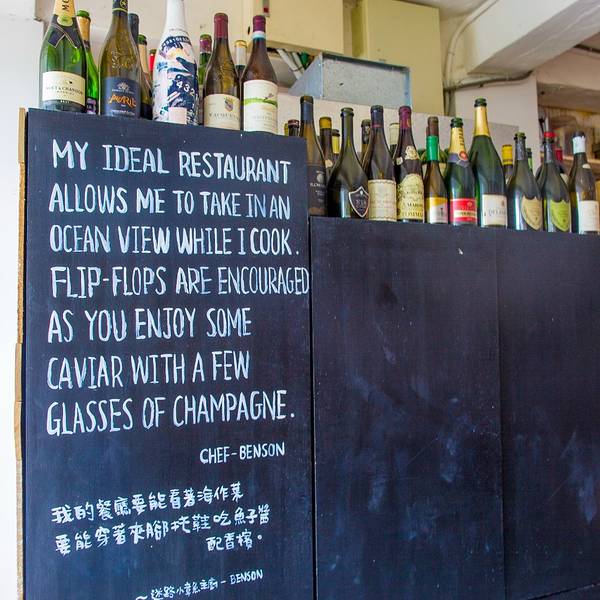 MY IDEAL RESTAURANT
ALLOWS ME TO TAKE IN AN
OCEAN VIEW WHILE I COOK.
FLIP-FLOPS ARE ENCOURAGED
AS YOU ENJOY SOME
CAVIAR WITH A FEW
GLASSES OF CHAMPAGNE.
CHEF-BENSON
我的餐廳要能看著海作菜
要能穿著夾腳拖鞋吃魚子醬
配香檳。
~迷路小章魚主廚-BENSON
MOËT & CHANDON